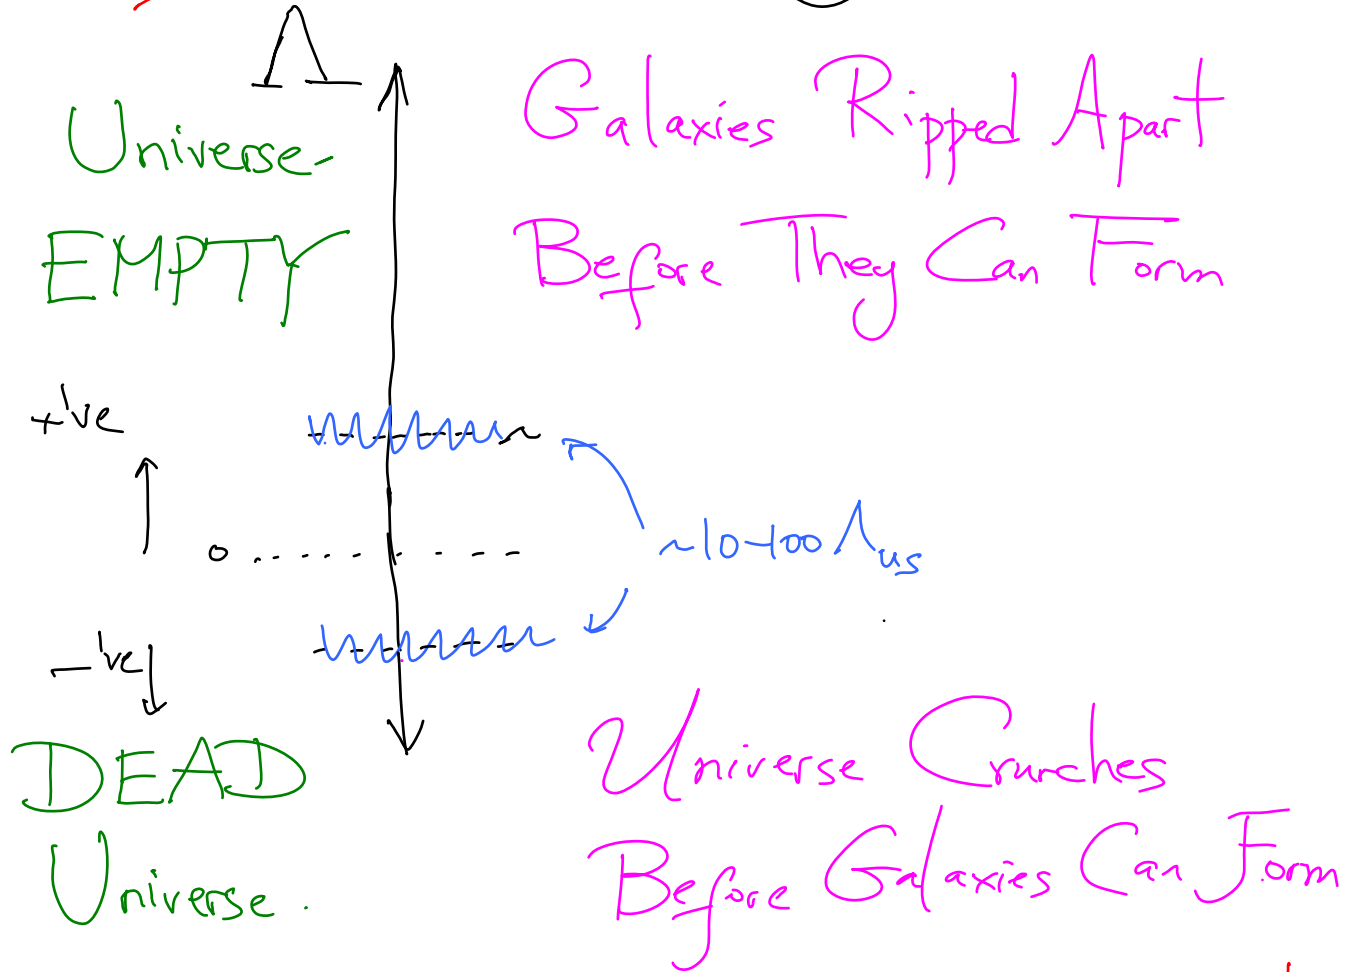 Λ
Universe-
EMPTY
Galaxies Ripped Apart
Before They Can Form
+'ve
0
~10-100 Λus
-'ve
DEAD
Universe.
Universe Crunches
Before Galaxies Can Form